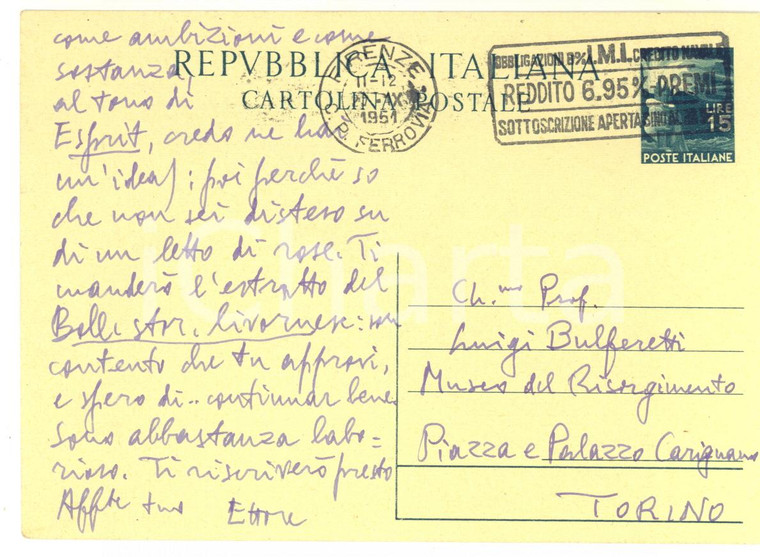 REPVBBLICA ITALIANA
CARTOLINA POSTALE
FIRENZE
11-12
1951
FERROVIA
OBBLIGAZIONI 8% I.M.I. CREDITO
REDDITO 6.95% PREMI
SOTTOSCRIZIONE APERTA SINO AL
LIRE
15
POSTE ITALIANE
come ambizioni e come
sostanza,
al tono di
Esprit, credo ne hai
un'idea); poi perchè so
che non sei disteso su
di un letto di rose. Ti
manderò l'estratto del
Boll. stor. livornese: son
contento che tu approvi,
e spero di.. continuar bene.
Sono abbastanza labo=
rioso. Ti riscriverò presto
Affte tuo Ettore
Ch.mo Prof.
Luigi Bulferetti
Museo del Risorgimento
Piazza e Palazzo Carignano
TORINO
iCharta